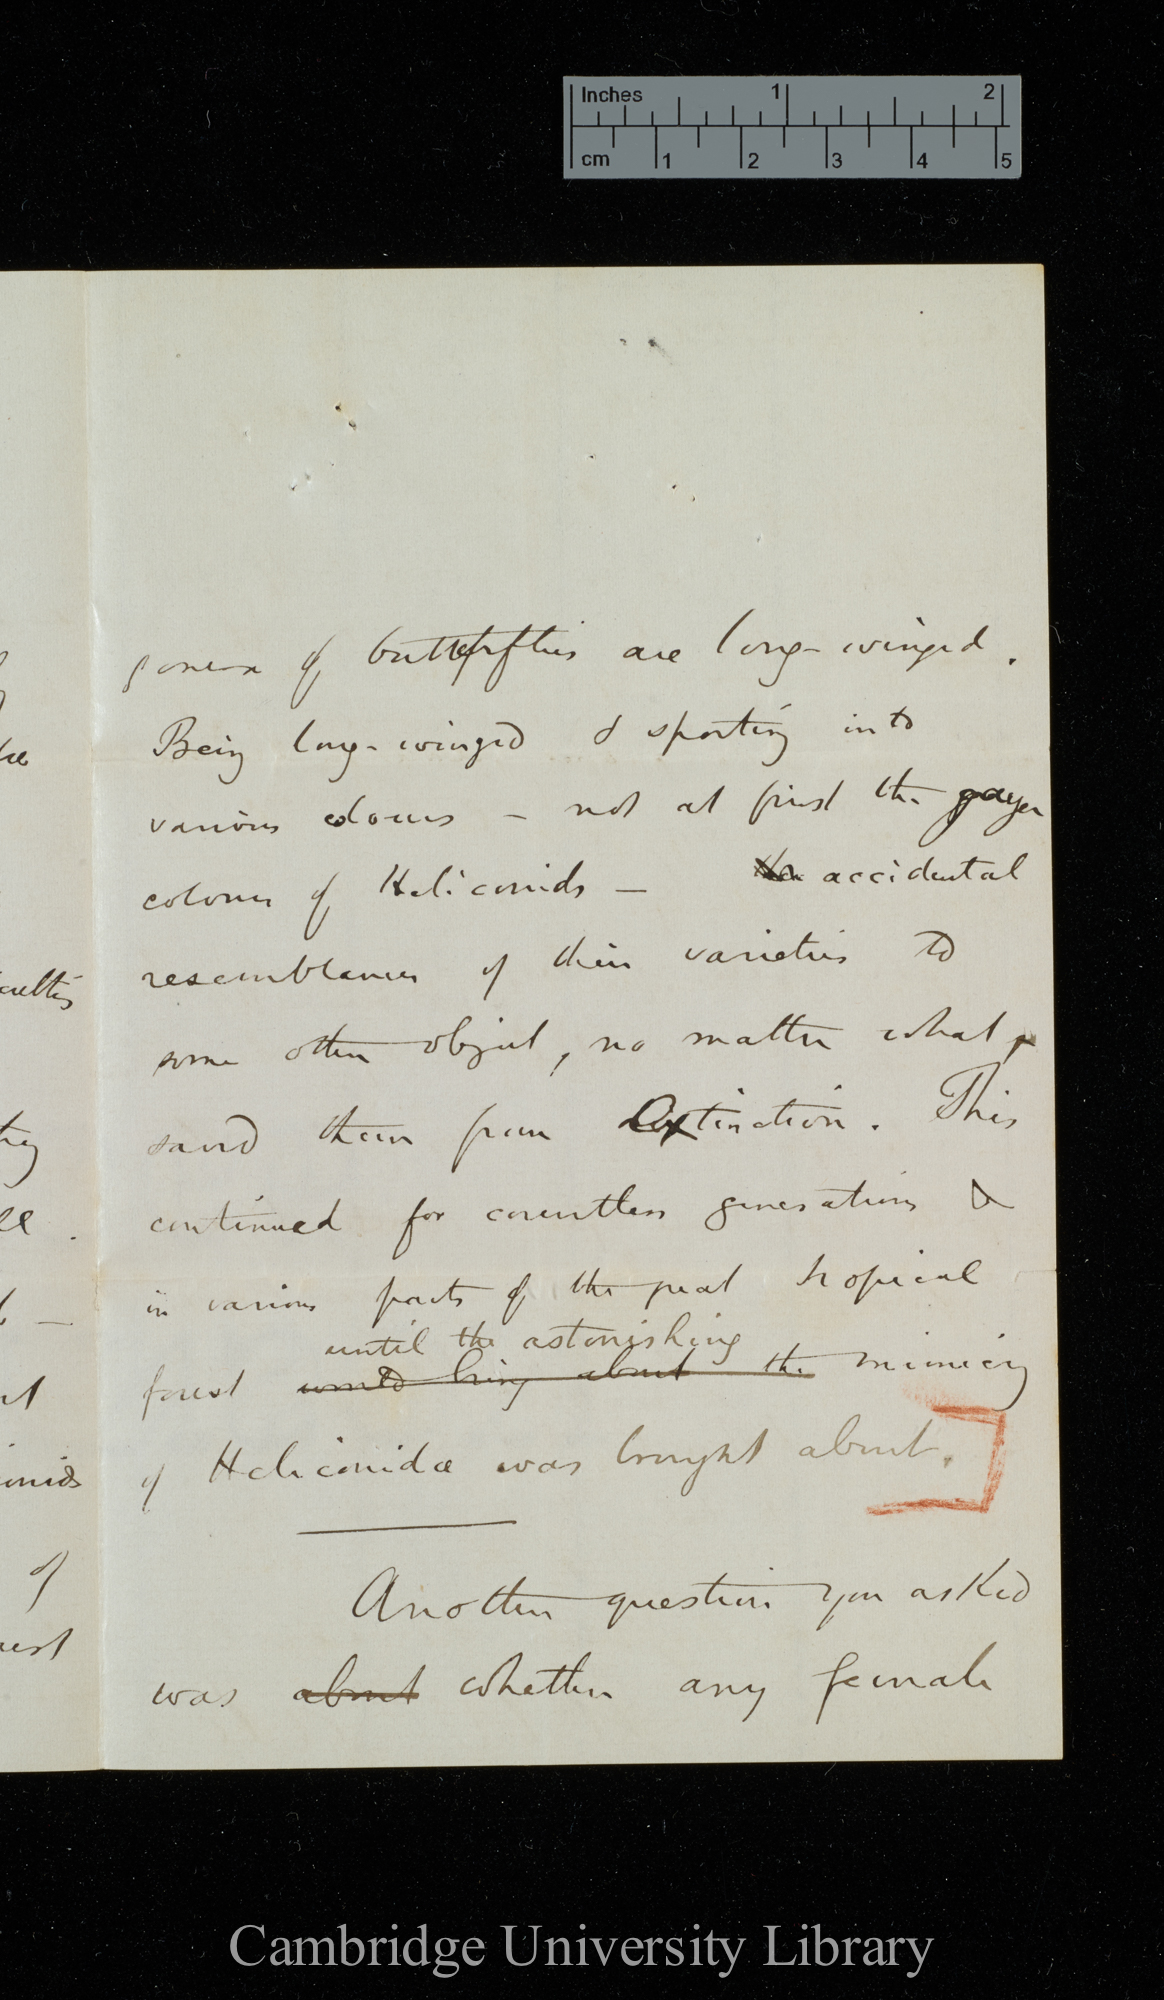 Inches 1 2
cm 1 2 3 4 5
genera of butterflies are long-winged.
Being long-winged & sporting into
various colours – not at first the gayer
colours of Heliconids – accidental
resemblances of their varieties to
some other object, no matter what,
saved them from extinction. This
continued for countless generations &
in various parts of the great tropical
until the astonishing
forest would bring about the mimicry
of Heliconidæ was brought about.
Another question you asked
was about whether any female
Cambridge University Library